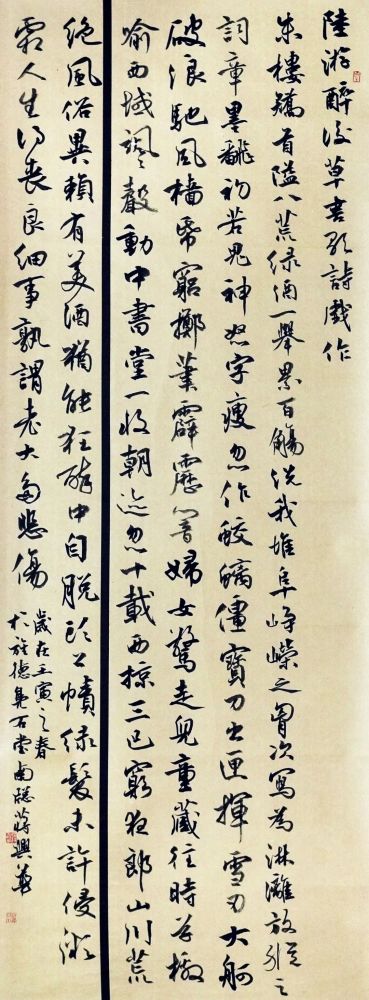 陸游醉後草書歌詩戲作
朱樓矯首隘八荒綠酒一舉累百觴洗我堆阜崢嶸之胷次寫為淋漓放縱之
詞章墨翻初若鬼神怒字瘦忽作蛟螭僵寶刀出匣揮雪刃大舸
破浪馳風檣帋窮擲筆霹靂響婦女驚走兒童藏往時草檄
喻西域颯颯聲動中書堂一收朝迹忽十載西掠三巴窮夜郎山川荒
絕風俗異賴有美酒猶能狂醉中自脫頭上幘綠髮未許侵微
霜人生得喪良細事孰謂老大多悲傷
歲在壬寅之春
於旌德鳧石堂南牕蔣興